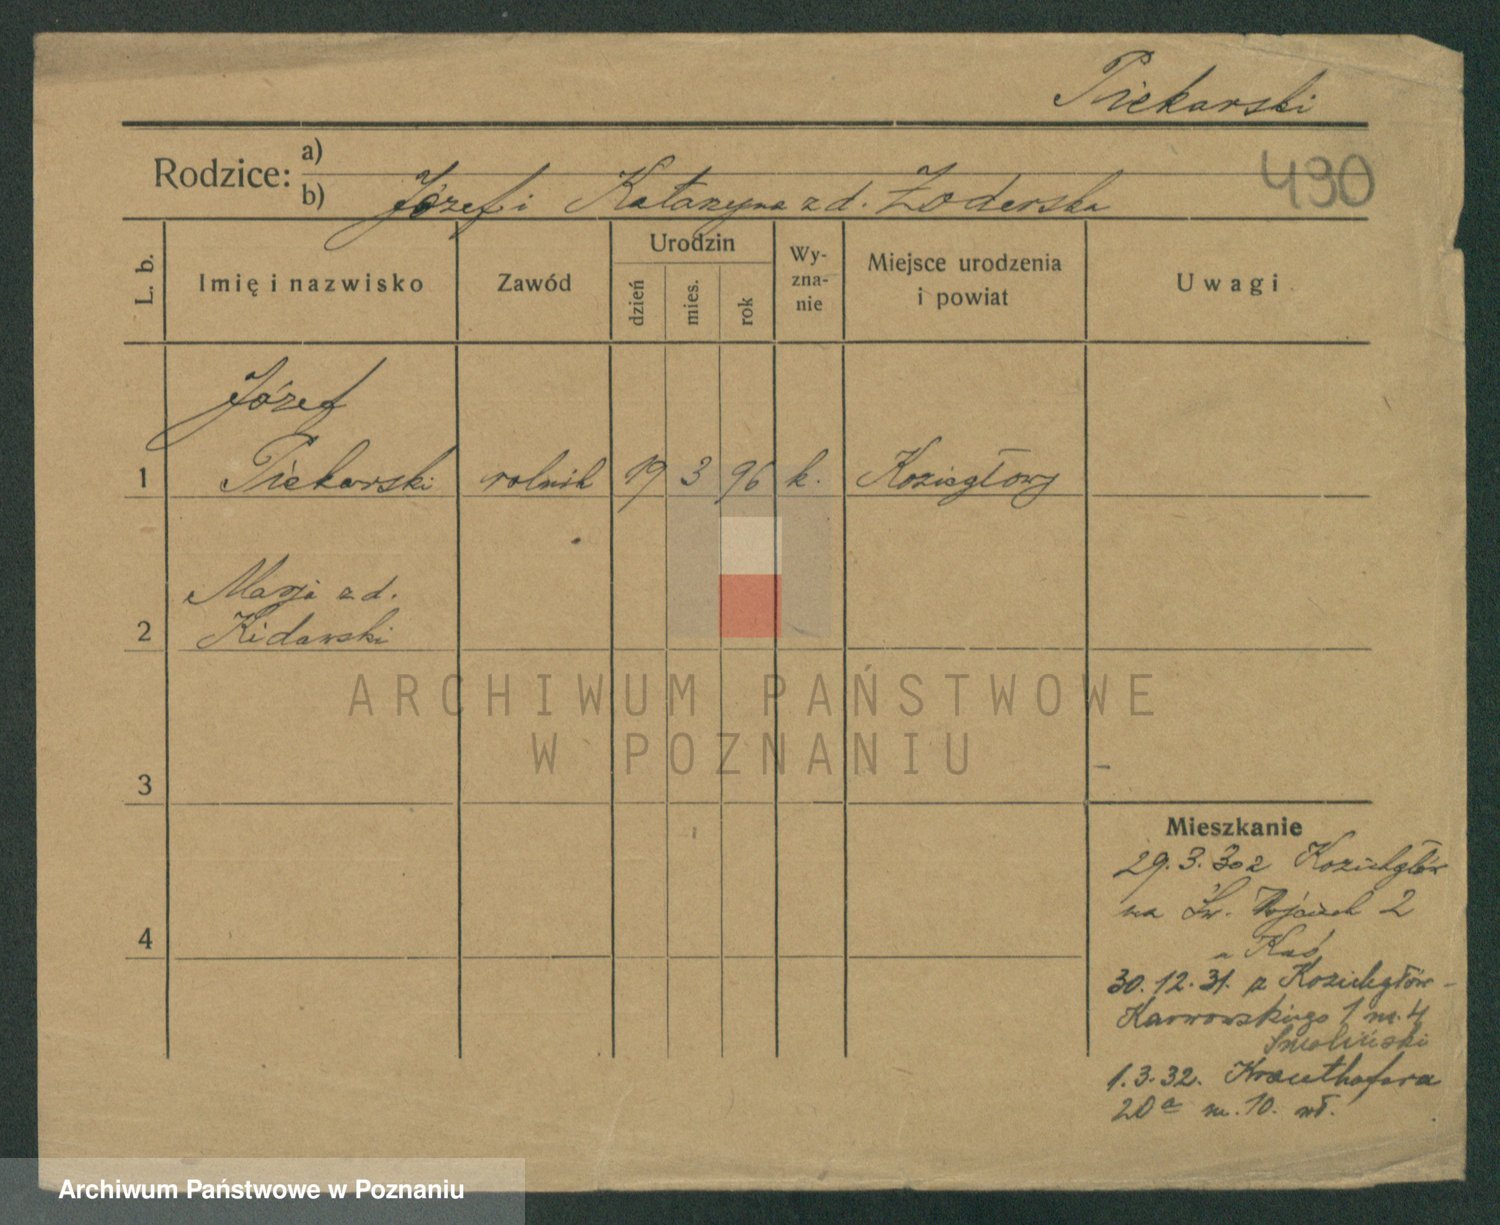 Piekarski
Rodzice: a)
b) Józef i Katarzyna z d. Żoderska
430
L. b.
Imię i nazwisko
Zawód
Urodzin
dzień
mies.
rok
Wy-
zna-
nie
Miejsce urodzenia
i powiat
Uwagi
Józef
1 Piekarski rolnik 19 3 96 k. Koziegłowy
Marja z d.
2 Kidawski
3
4
Mieszkanie
29.3. Koziehgłów
na Św. Wojciech 2
30.12.31. z Koziehgłów-
Karwowskiego 1 m. 4
Smoliński
1.3.32. Krauthofera
20a m. 10. wł.
ARCHIWUM PAŃSTWOWE
W POZNANIU
Archiwum Państwowe w Poznaniu